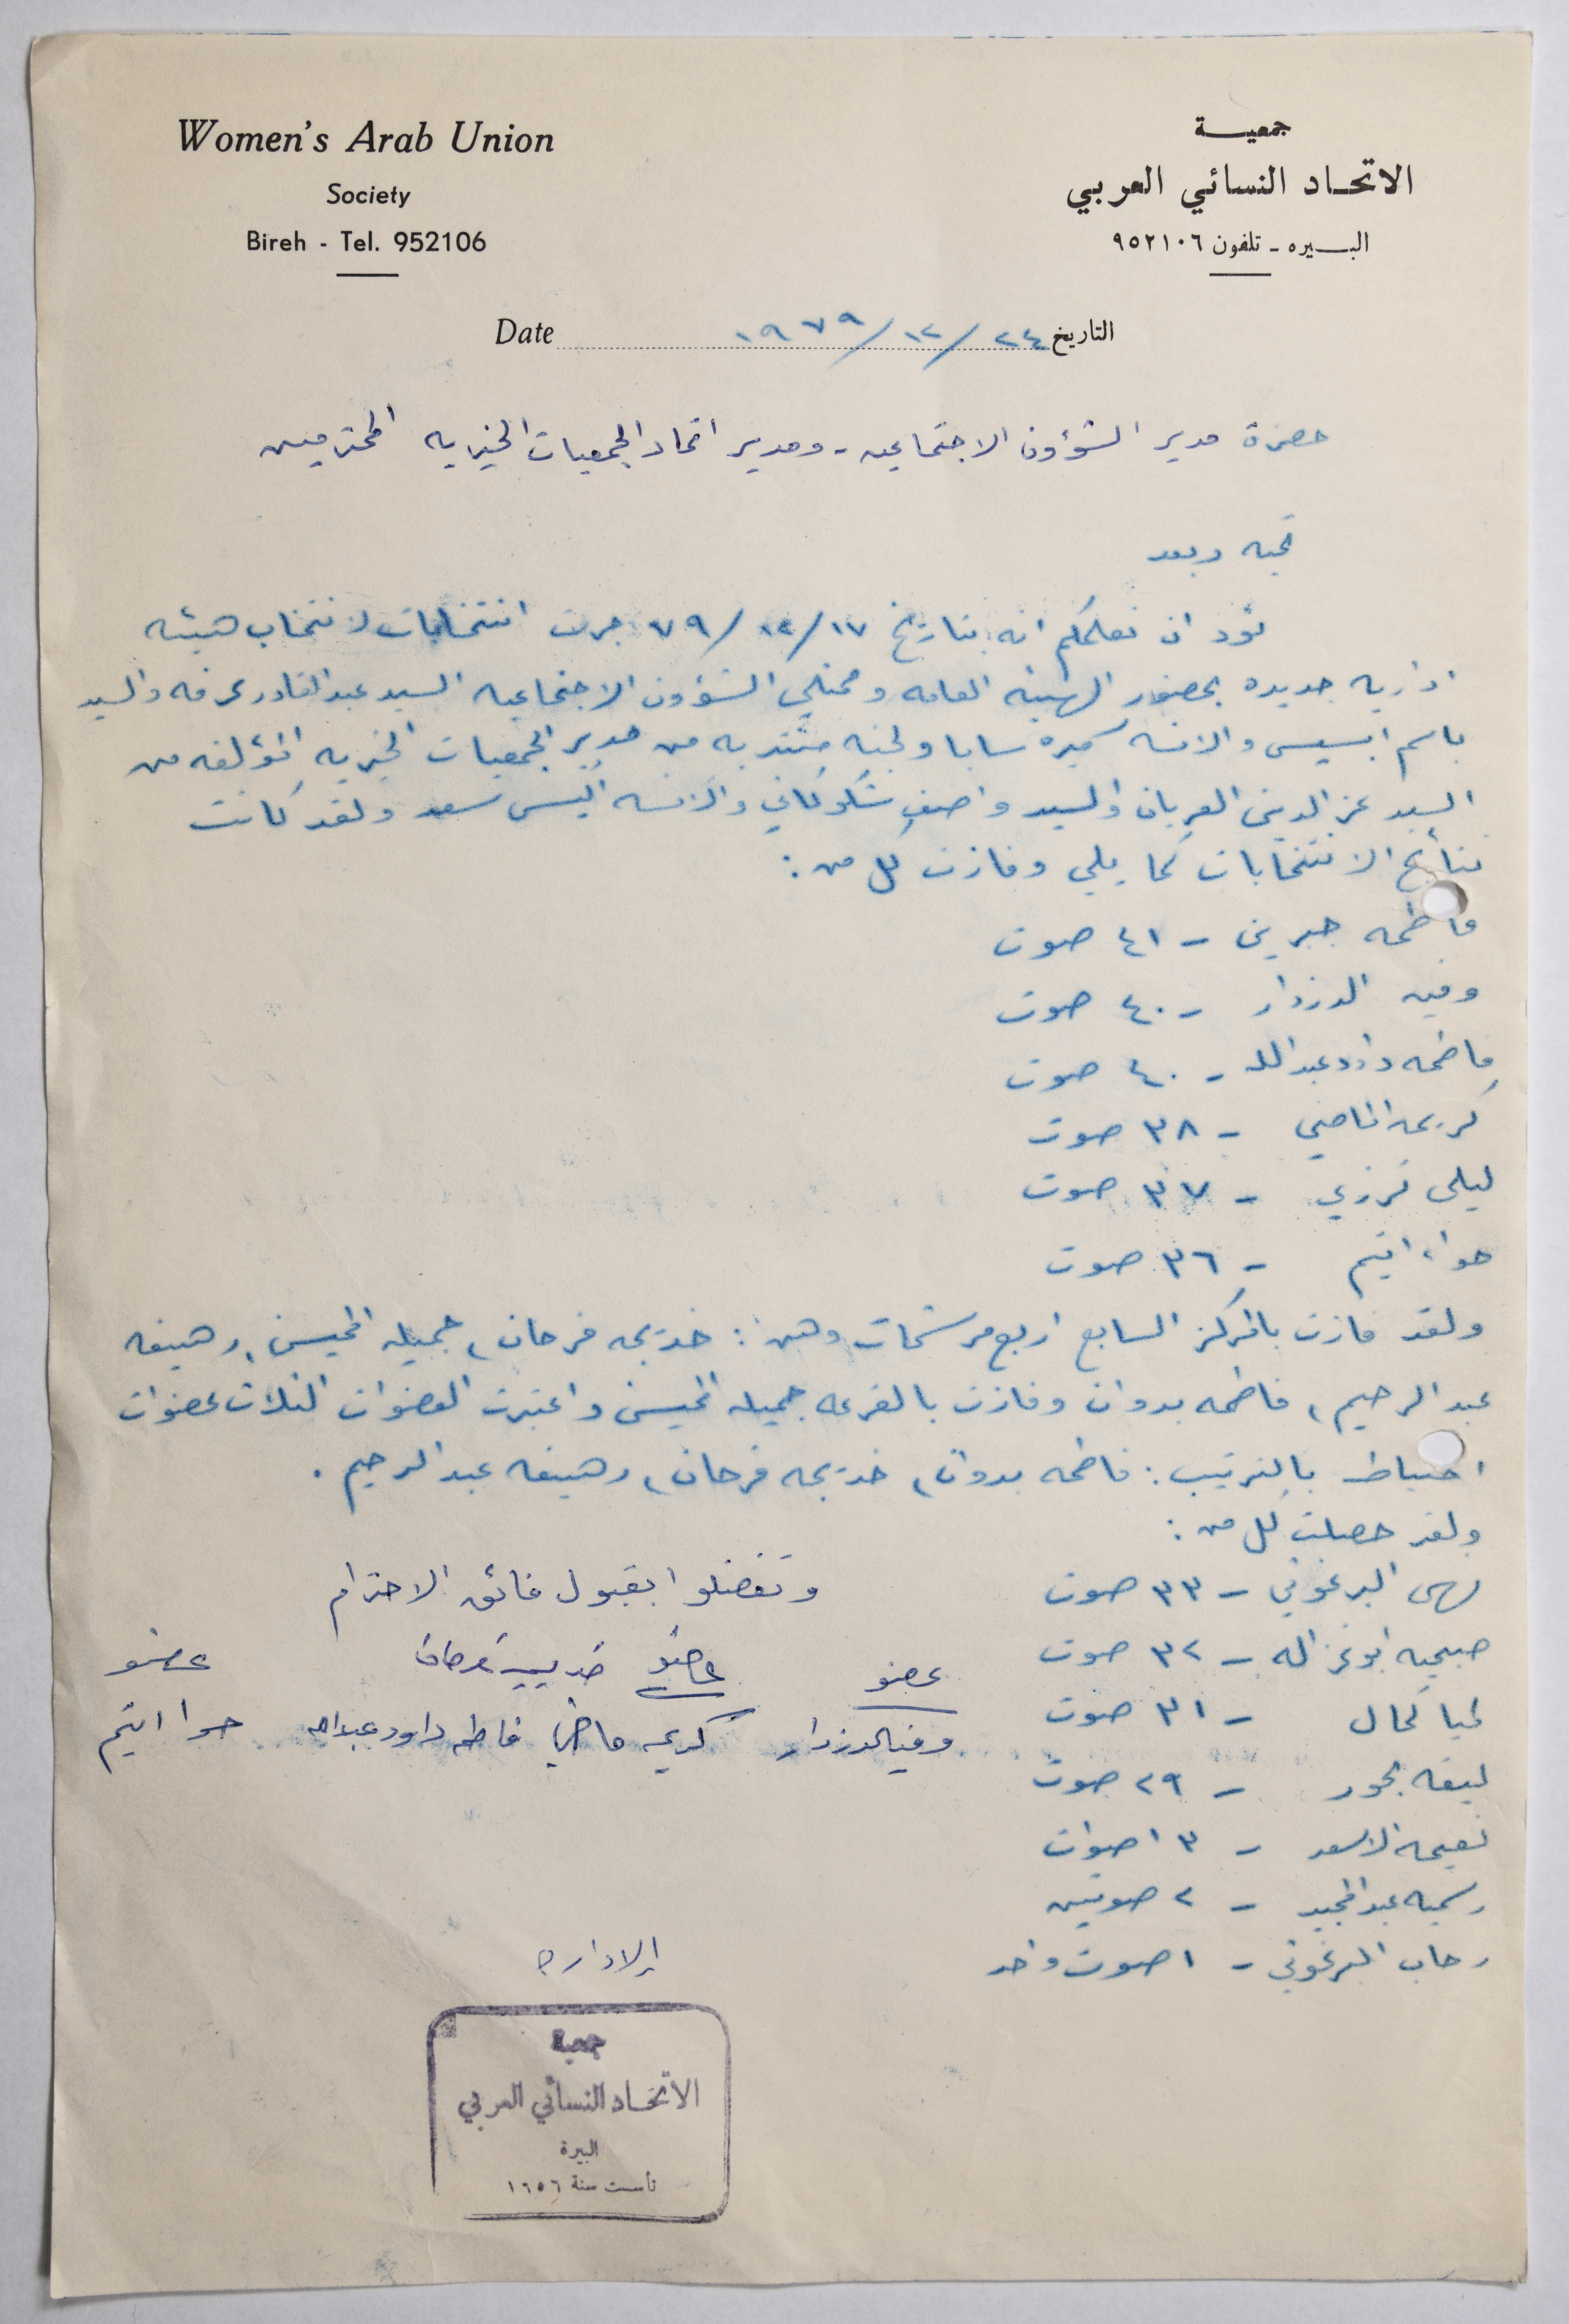 Women's Arab Union
Society
Bireh - Tel. 952106
جمعيــة
الاتحـاد النسائي العربي
البـيره - تلفون ٩٥٢١٠٦
Date ١٩٧٩/١٢/٢٤ التاريخ
حضرة مدير الشؤون الاجتماعيه - ومدير اتحاد الجمعيات الخيريه المحترمين
تحيه وبعد
نود ان نعلمكم انه بتاريخ ٧٩/١٢/١٧ جرت انتخابات لانتخاب هيئه
اداريه جديده بحضور الهيئه العامه وممثلي الشؤون الاجتماعيه السيد عبدالقادر عرفه والسيد
باسم ابسيس والانسه سميره سابا ولجنه منتدبه من مدير الجمعيات الخيريه المؤلفه من
السيد عزالدين العريان والسيد واصف شكوكاني والآنسه أليس سعد ولقد كانت
نتائج الانتخابات كما يلي وفازت كل من :
فاطمه جبرين - ٤١ صوت
وفيه الدزدار - ٤٠ صوت
فاطمه داود عبدالله - ٤٠ صوت
كريمه الماضي - ٣٨ صوت
ليلى قرزي - ٣٧ صوت
حواء اتيم - ٣٦ صوت
ولقد فازت بالمركز السابع اربع مرشحات وهن : خديجه فرحان ، جميله المحيسن ، رهيفه
عبد الرحيم ، فاطمه بدوان وفازت بالقرعه جميله المحيسن واعتبرت العضوات الثلاث عضوات
احتياط بالترتيب : فاطمه بدوان ، خديجه فرحان ، رهيفه عبد الرحيم .
ولقد حصلت كل من :
نهى البرغوثي - ٣٣ صوت
صبحيه ابوغزاله - ٣٢ صوت
لميا كحال - ٣١ صوت
لبيقه بحور - ٢٩ صوت
نعيمه الاسعد - ٣ اصوات
رسميه عبدالمجيد - ٢ صوتين
رحاب البرغوثي - ١ صوت واحد
وتفضلوا بقبول فائق الاحترام
عضو عضو خديجة فرحان عضو
وفيه الدزدار كريمه ماضي فاطمه داود عبدالله حوا اتيم
الاداره
جمعية
الاتحاد النسائي العربي
البيرة
تأسست سنة ١٩٥٦